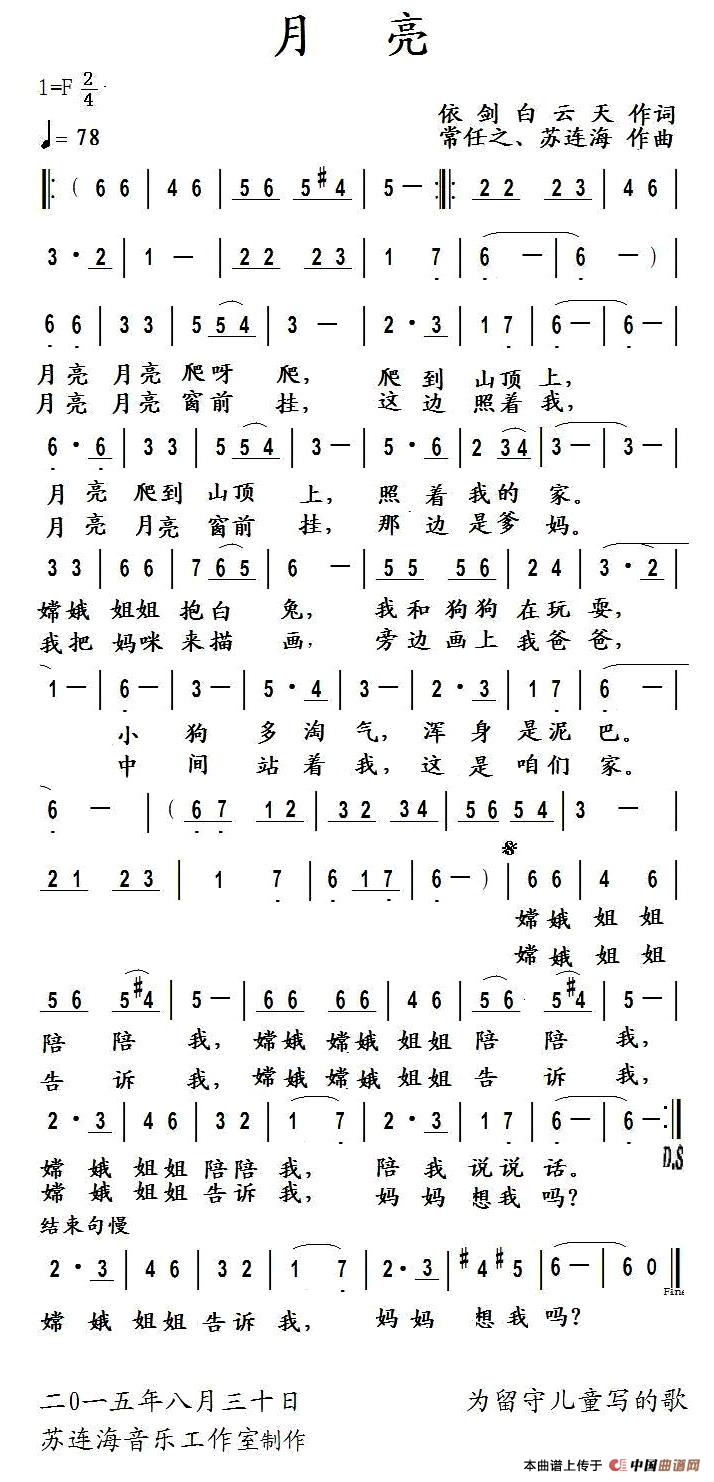 月 亮
1=F 2/4
♩= 78
依剑白云天 作词
常任之、苏连海 作曲
‖: ( 6 6 | 4 6 | 5 6 5 #4 | 5 — :‖: 2 2 2 3 | 4 6 |
3 · 2 | 1 — | 2 2 2 3 | 1 7 | 6 — | 6 — ) |
6 6 | 3 3 | 5 5 4 | 3 — | 2 · 3 | 1 7 | 6 — | 6 — |
月亮 月亮 爬呀 爬， 爬到 山顶上，
月亮 月亮 窗前 挂， 这边 照着我，
6 · 6 | 3 3 | 5 5 4 | 3 — | 5 · 6 | 2 3 4 | 3 — | 3 — |
月亮 爬到 山顶 上， 照着我的家。
月亮 月亮 窗前 挂， 那边是爹妈。
3 3 | 6 6 | 7 6 5 | 6 — | 5 5 5 6 | 2 4 | 3 · 2 |
嫦娥 姐姐 抱白 兔， 我和狗狗在玩耍，
我把 妈咪 来描 画， 旁边画上我爸爸，
1 — | 6 — | 3 — | 5 · 4 | 3 — | 2 · 3 | 1 7 | 6 — |
小狗多淘气，浑身是泥巴。
中间站着我，这是咱们家。
6 — | ( 6 7 1 2 | 3 2 3 4 | 5 6 5 4 | 3 — |
2 1 2 3 | 1 7 | 6 1 7 | 6 — ) | 6 6 | 4 6 |
嫦娥 姐姐
嫦娥 姐姐
5 6 5 #4 | 5 — | 6 6 6 6 | 4 6 | 5 6 5 #4 | 5 — |
陪陪我，嫦娥 嫦娥 姐姐陪陪我，
告诉我，嫦娥 嫦娥 姐姐告诉我，
2 · 3 | 4 6 | 3 2 | 1 7 | 2 · 3 | 1 7 | 6 — | 6 — :‖
D.S
嫦娥姐姐陪陪我， 陪我说说话。
嫦娥姐姐告诉我， 妈妈想我吗？
结束句慢
2 · 3 | 4 6 | 3 2 | 1 7 | 2 · 3 | #4 #5 | 6 — | 6 0 ‖
Fine
嫦娥姐姐告诉我， 妈妈想我吗？
二0一五年八月三十日 为留守儿童写的歌
苏连海音乐工作室制作
本曲谱上传于 中国曲谱网